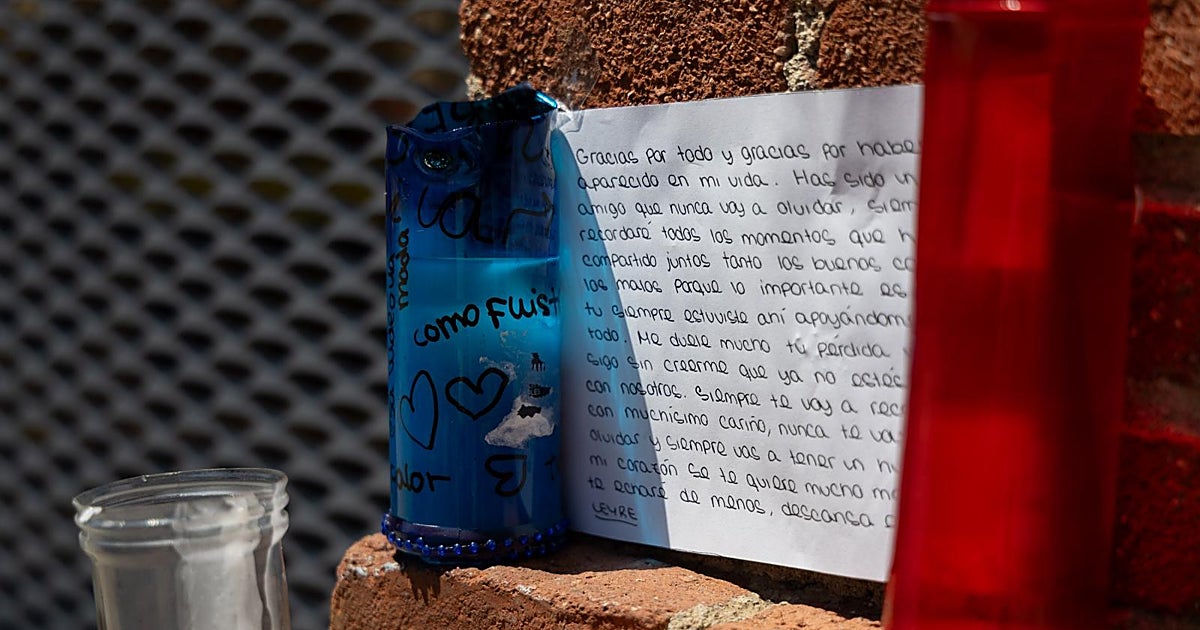 como fuist
Gracias por todo y gracias por habe
aparecido en mi vida. Has sido un
amigo que nunca voy a olvidar, siem
recordaré todos los momentos que h
compartido juntos tanto los buenos co
los malos porque lo importante es
tu siempre estuviste ahí apoyándom
todo. Me duele mucho tú pérdida y
sigo sin creerme que ya no estés
con nosotros. Siempre te voy a rec
con muchísimo cariño, nunca te vo
olvidar y siempre vas a tener un h
mi corazón se te quiere mucho m
te echaré de menos, descansa e
LEYRE